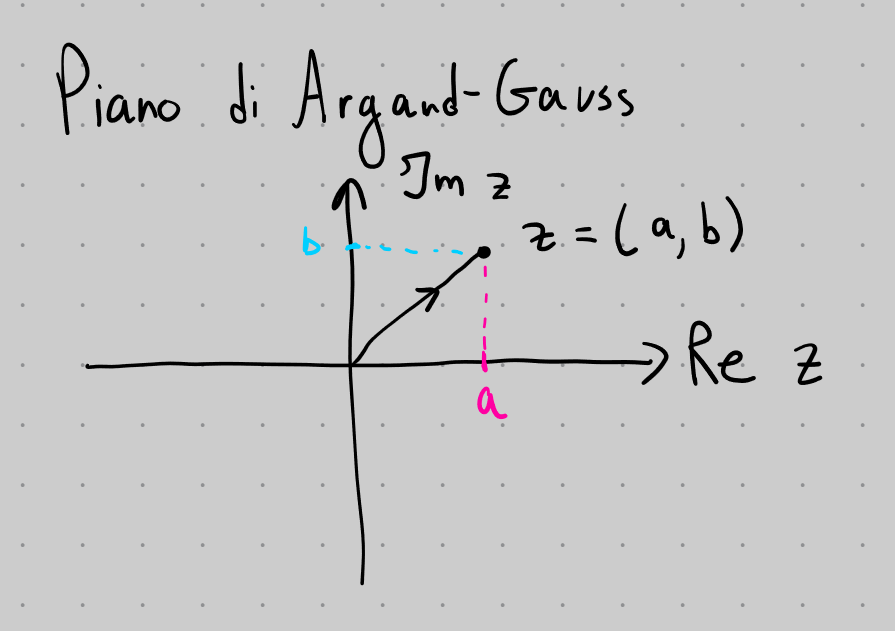 Piano di Argand-Gauss
Im z
b
z = (a, b)
Re z
a